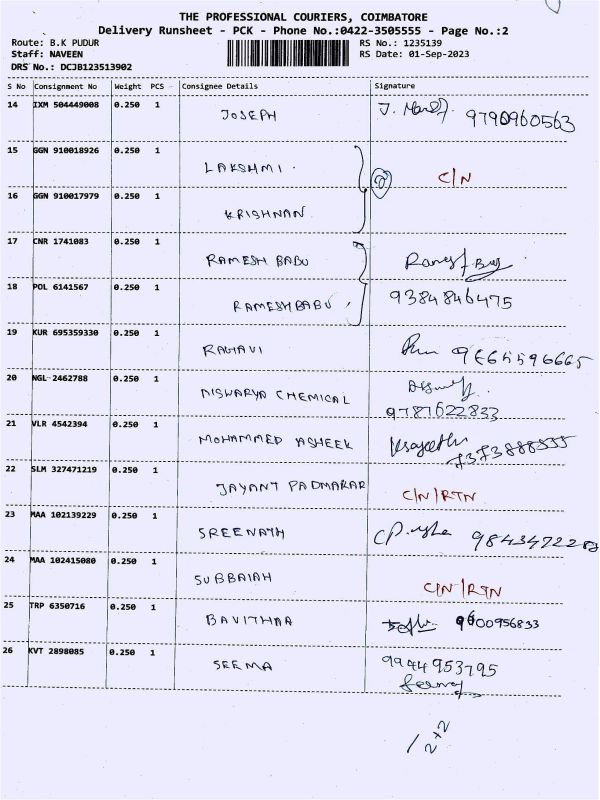 THE PROFESSIONAL COURIERS, COIMBATORE
Delivery Runsheet - PCK - Phone No.:0422-3505555 - Page No.:2
Route: B.K PUDUR RS No.: 1235139
Staff: NAVEEN RS Date: 01-Sep-2023
DRS No.: DCJB123513902
S No Consignment No Weight PCS Consignee Details Signature
14 IXM 504449008 0.250 1 JOSEPH 9790960563
15 GGN 910018926 0.250 1 LAKSHMI C/N
16 GGN 910017979 0.250 1 KRISHNAN
17 CNR 1741083 0.250 1 RAMESH BABU
18 POL 6141567 0.250 1 RAMESH BABU 9384846475
19 KUR 695359330 0.250 1 RAGAVI
20 NGL-2462788 0.250 1 AISWARYA CHEMICAL
9787622833
21 VLR 4542394 0.250 1 MOHAMMED ASHEEK
7373888555
22 SLM 327471219 0.250 1 JAYANT PADMAKAR C/N/RTN
23 MAA 102139229 0.250 1 SREENATH
24 MAA 102415080 0.250 1 SUBBAIAH C/N/RTN
25 TRP 6350716 0.250 1 BAVITHAA 9600956833
26 KVT 2898085 0.250 1 SEEMA 9944953795